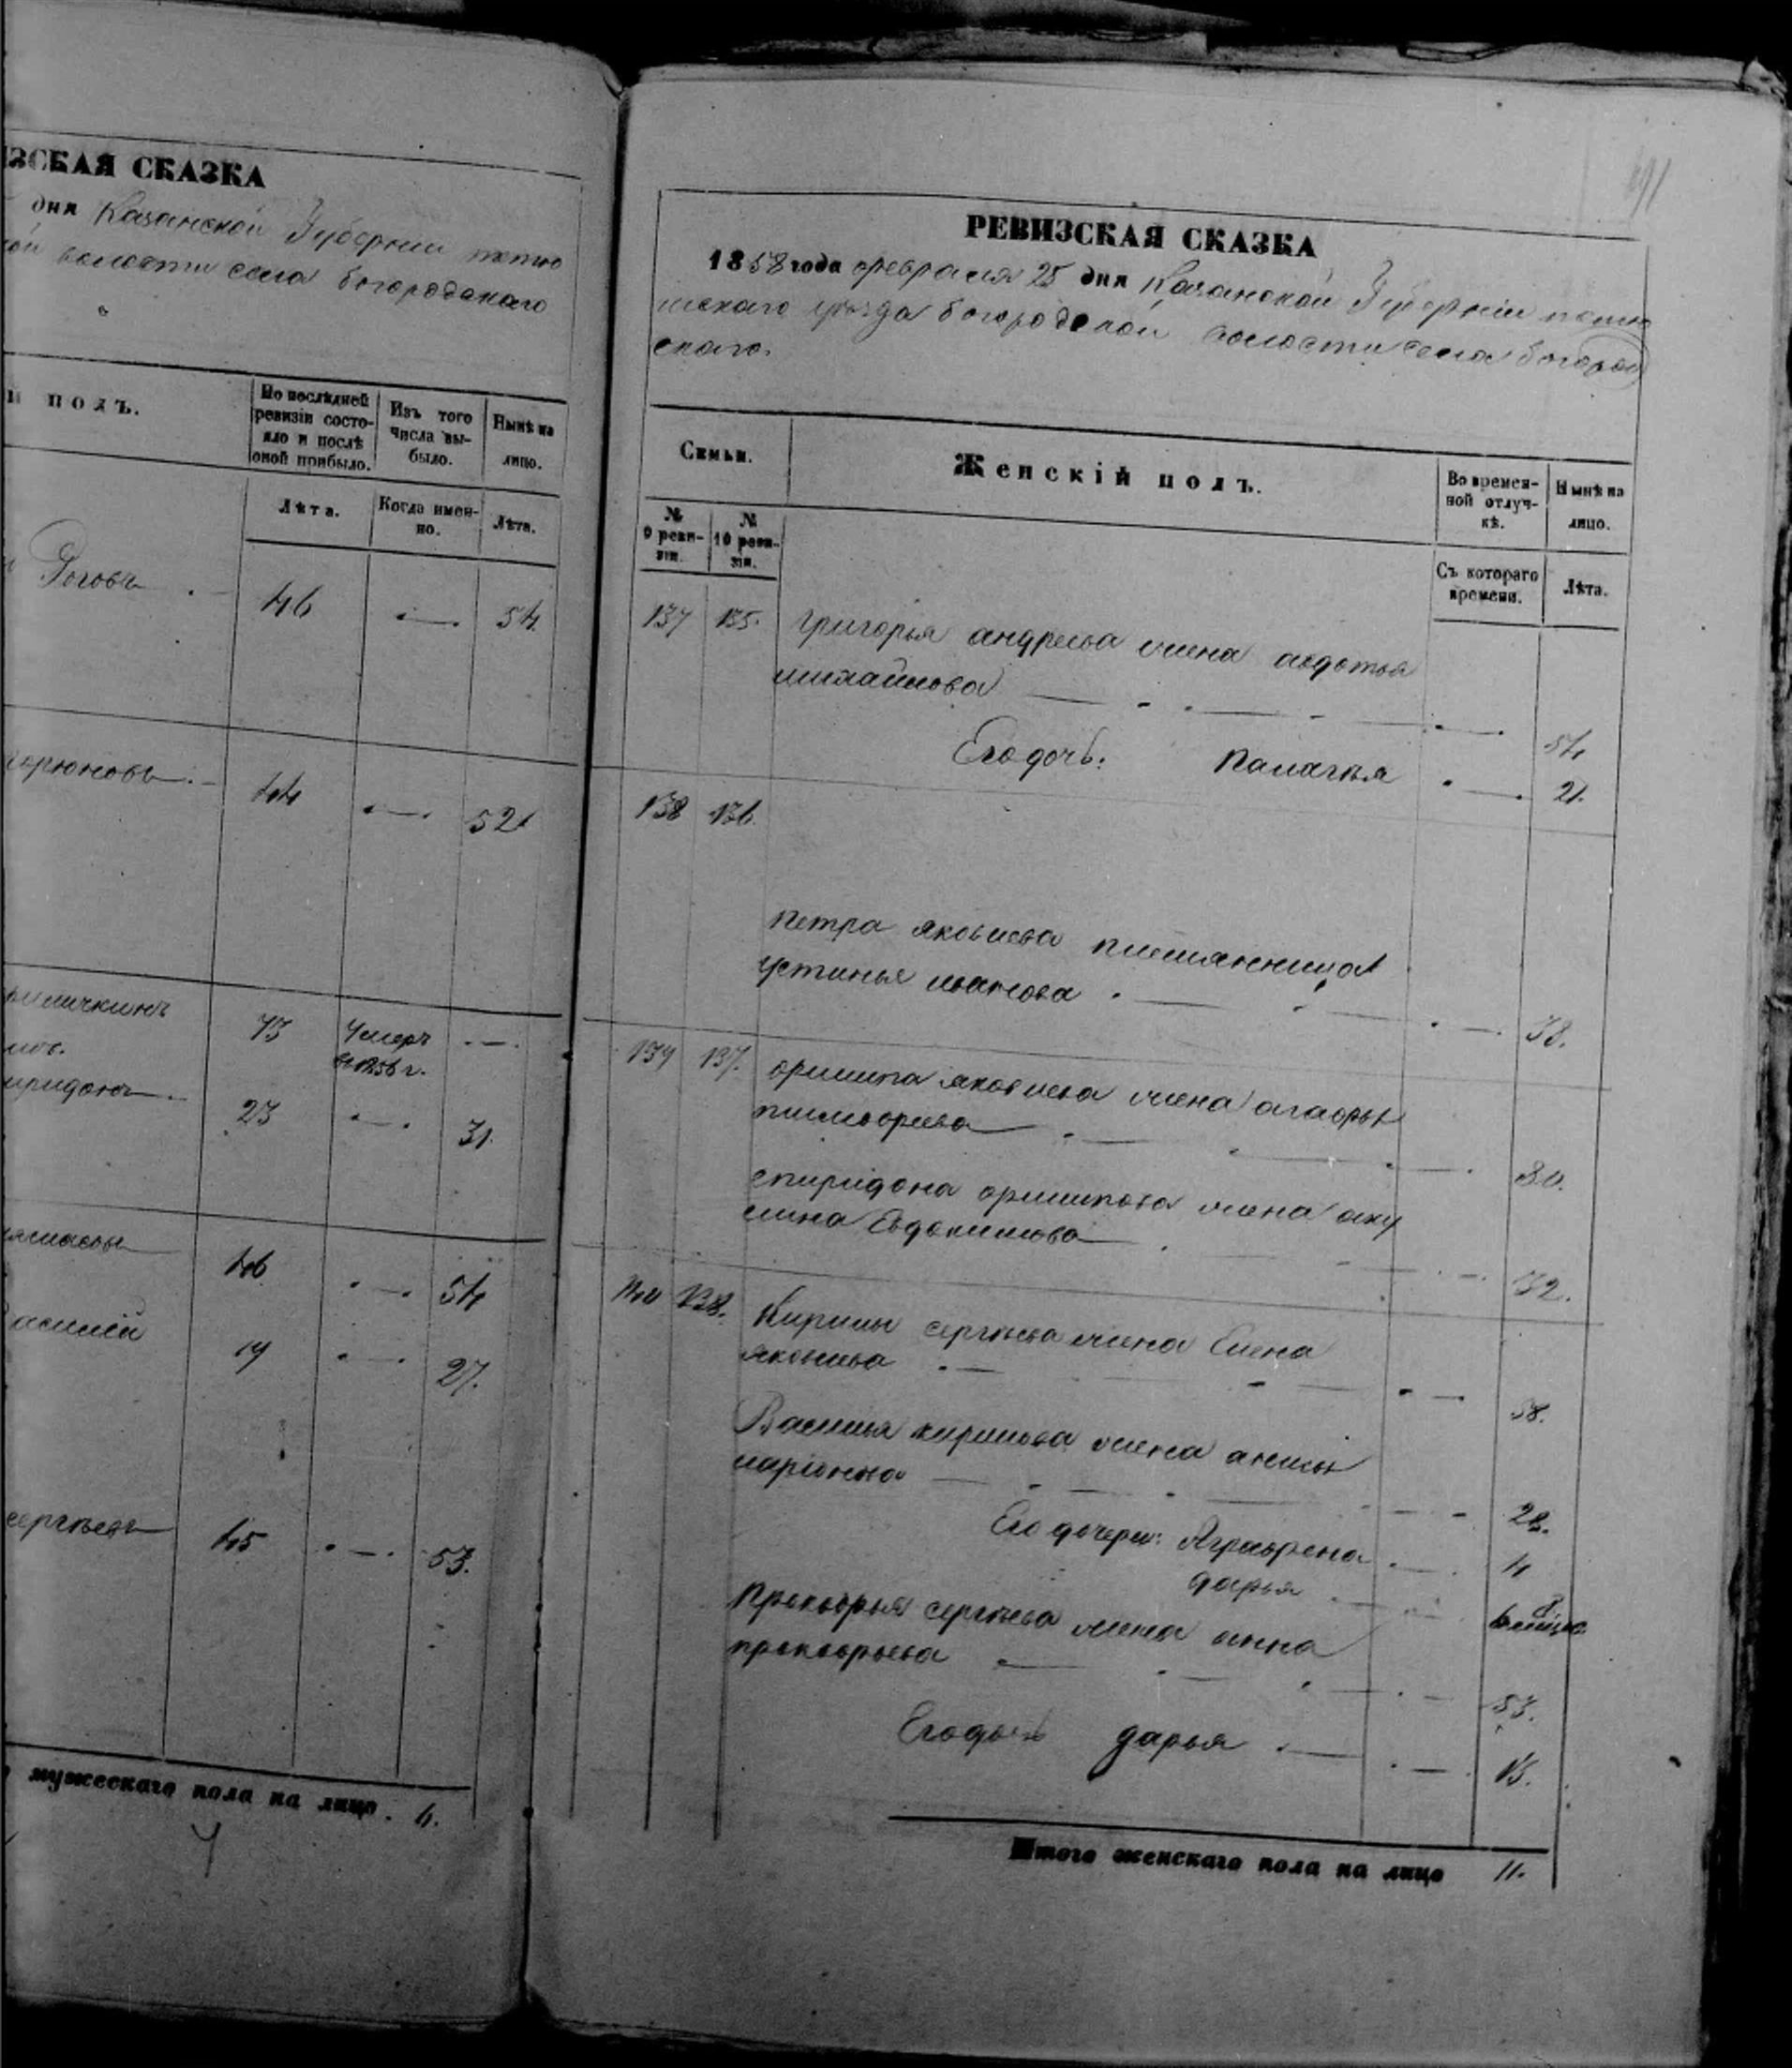 ИЗСКАЯ СКАЗКА
дня Казанской Губернии тетю
кой волости села богородскаго
й полъ.
По последней ревизіи состо-
яло и послѣ
оной прибыло.
Изъ того
числа вы-
было.
Нынѣ на
лицо.
Лѣта.
Когда имен-
но.
Лѣта.
Роговъ
46
54
44
52
73
Умеръ
въ 1856 г.
23
31.
46
54
19
27.
сергѣевъ
45
53.
мужескаго пола на лицо. 6.
РЕВИЗСКАЯ СКАЗКА
1858 года февраля 25 дня Казанской Губерніи тетю
шскаго уѣзда богородской волости села богород
скаго.
Семьи.
Женскій полъ.
Во времен-
ной отлуч-
кѣ.
Нынѣ на
лицо.
№
9 реви-
зіи.
№
10 реви-
зіи.
Съ котораго
времени.
Лѣта.
137 135. григорья андреева жена авдотья
михайлова 54
Его дочь: палагѣя 21.
138 136.
петра яковлева племянница
устинья иванова 38.
139 137. филипа яковлева жена агафья
тимофеева 80.
спиридона филипова жена аку
лина Евдокимова 32.
140 138. Кирилы сергѣева жена Елена
яковлева 58.
Василья кирилова жена анисья
ларіонова 28.
Его дочери: Аграфена 4
дарья
прокофья сергѣева жена анна
прокофьева 53.
Его дочь дарья 15.
Итого женскаго пола на лицо 11.